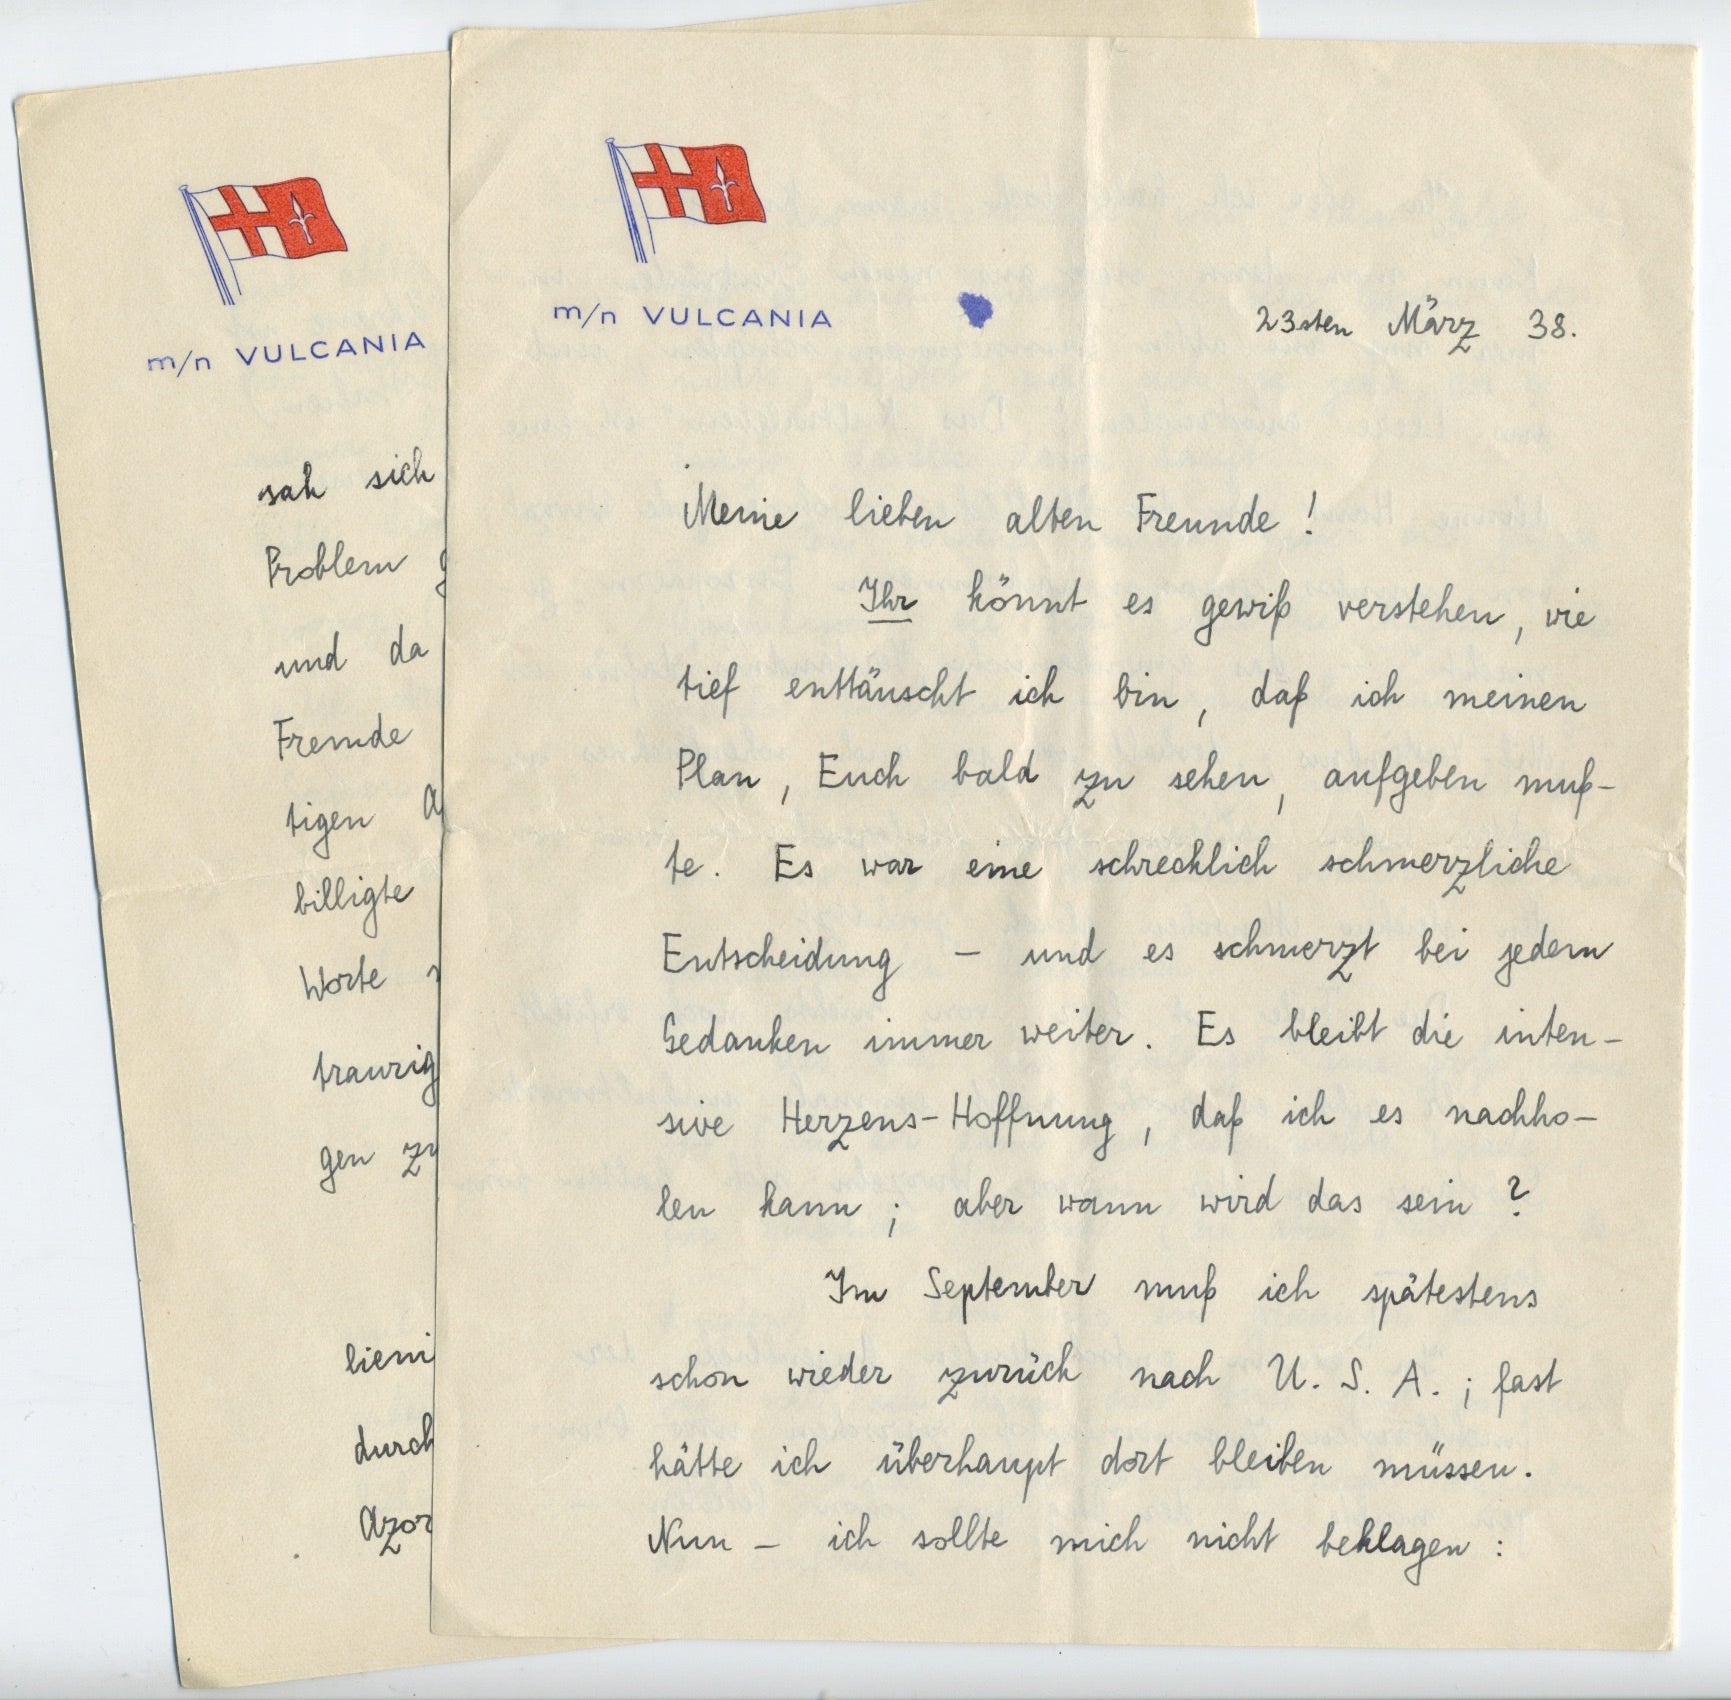 m/n VULCANIA
23sten März 38.
Meine lieben alten Freunde!
Ihr könnt es gewiß verstehen, wie
tief enttäuscht ich bin, daß ich meinen
Plan, Euch bald zu sehen, aufgeben muß-
te. Es war eine schrecklich schmerzliche
Entscheidung – und es schmerzt bei jedem
Gedanken immer weiter. Es bleibt die inten-
sive Herzens-Hoffnung, daß ich es nachho-
len kann; aber wann wird das sein?
Im September muß ich spätestens
schon wieder zurück nach U. S. A.; fast
hätte ich überhaupt dort bleiben müssen.
Nun – ich sollte mich nicht beklagen:
m/n VULCANIA
sah sich
Problem
und da
Fremde
tigen
billigte
Worte
traurig
gen zu
lieni
durch
Azor